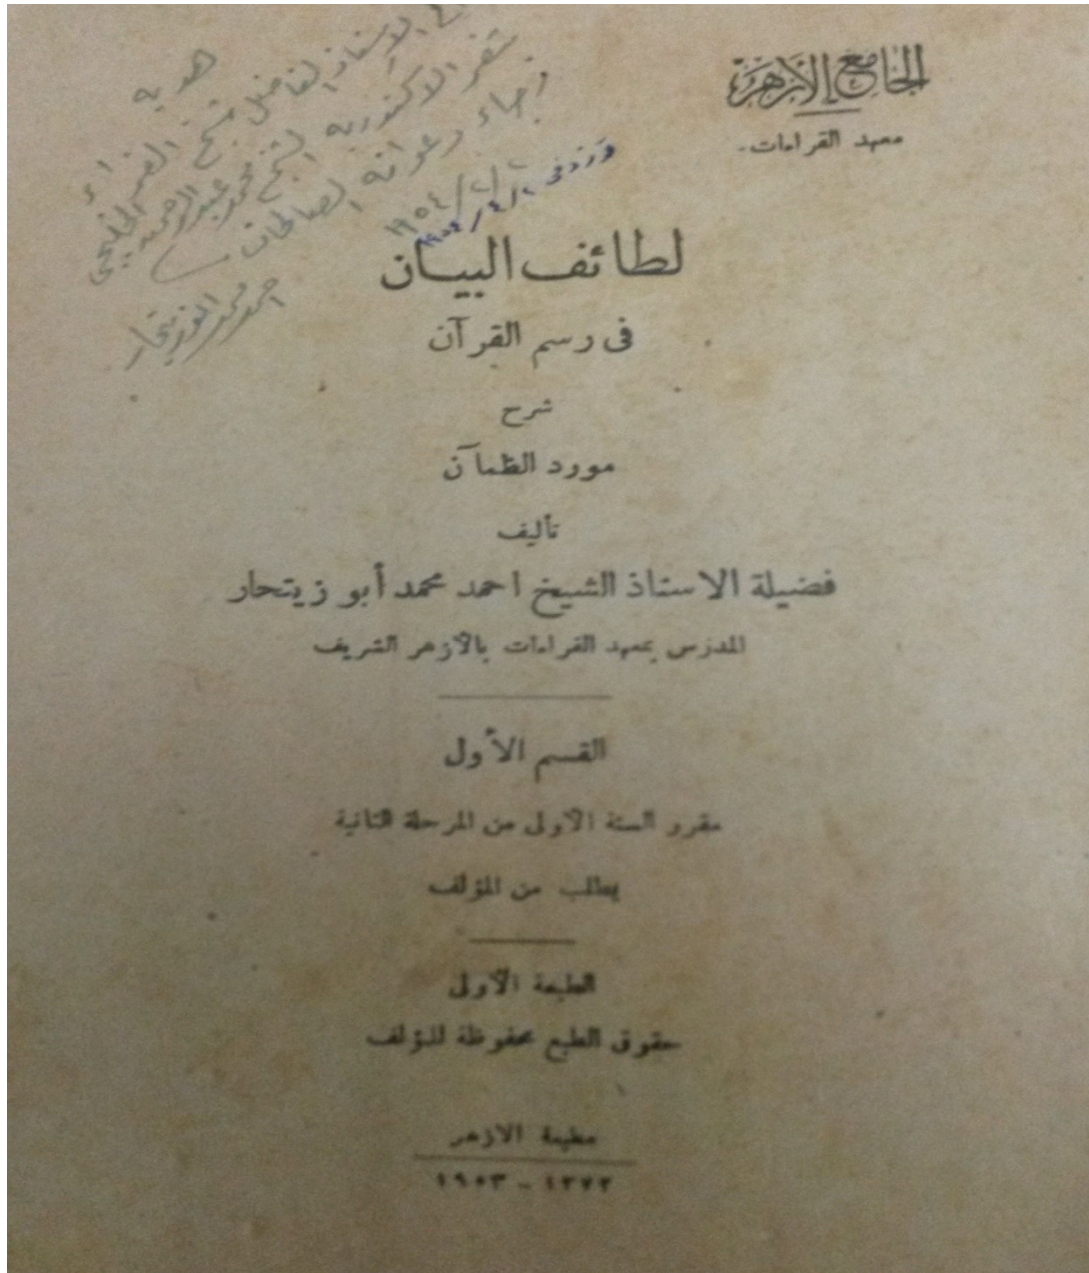 الجامع الأزهر
معهد القراءات
هديه
الاستاذ الفاضل شيخ القراء
بثغر الاسكندريه الشيخ محمد عبد الحميد الخليجى
رجاء دعواته الصالحات
احمد محمد ابوزيتحار
١٩٥٤/٢/٢
وردفى ١٩٥٤/٤/٢
لطائف البيان
فى رسم القرآن
شرح
مورد الظمآن
تأليف
فضيلة الاستاذ الشيخ احمد محمد أبو زيتحار
المدرس بمعهد القراءات بالأزهر الشريف
القسم الأول
مقرر السنة الاولى من المرحلة الثانية
يطلب من المؤلف
الطبعة الأولى
حقوق الطبع محفوظة للمؤلف
مطبعة الازهر
١٣٧٢ - ١٩٥٣